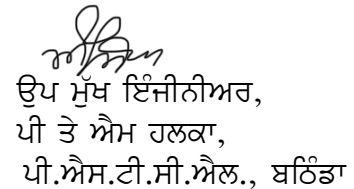 ਉਪ ਮੁੱਖ ਇੰਜੀਨੀਅਰ,
ਪੀ ਤੇ ਐਮ ਹਲਕਾ,
ਪੀ.ਐਸ.ਟੀ.ਸੀ.ਐਲ., ਬਠਿੰਡਾ